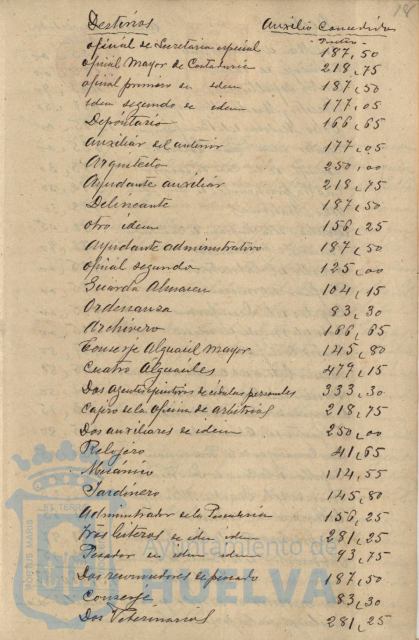 18
Destinos Auxilio Concedido
Pesetas
oficial de Secretaria especial 187,50
oficial Mayor de Contaduria 218,75
oficial primero de idem 187,50
idem segundo de idem 177,05
Depositario 166,65
Auxiliar del anterior 177,05
Arquitecto 250,00
Ayudante auxiliar 218,75
Delineante 187,50
otro idem 156,25
Ayudante administrativo 187,50
oficial segundo 125,00
Guarda Almacen 104,15
Ordenanza 83,30
Archivero 166,65
Conserje Alguacil Mayor 145,80
Cuatro Alguaciles 479,15
Dos agentes ejecutivos de cédulas personales 333,30
Cajero de la oficina de arbitrios 218,75
Dos auxiliares de idem 250,00
Relojero 41,65
Mecánico 114,55
Jardinero 145,80
Administrador de la Pescaderia 156,25
Tres de idem idem 281,25
Pesador de idem idem 93,75
Dos reconocedores de pescado 187,50
Conserje 83,30
Dos Veterinarios 281,25
Ayuntamiento de
HUELVA